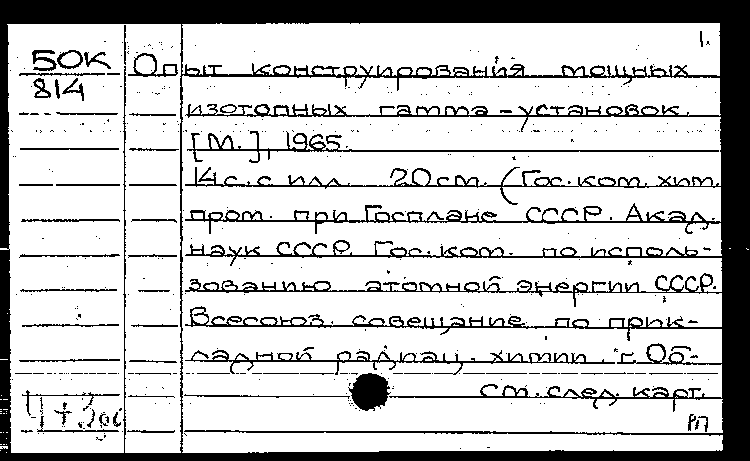 1.
БОК
814
Опыт конструирования мощных
изотопных гамма-установок.
[М.], 1965.
14 с. с илл. 20 см. (Гос. ком. хим.
пром. при Госплане СССР. Акад.
наук СССР. Гос. ком. по исполь-
зованию атомной энергии СССР.
Всесоюз. совещание по прик-
ладной радиац. химии. г. Об-
см. след. карт.
РП